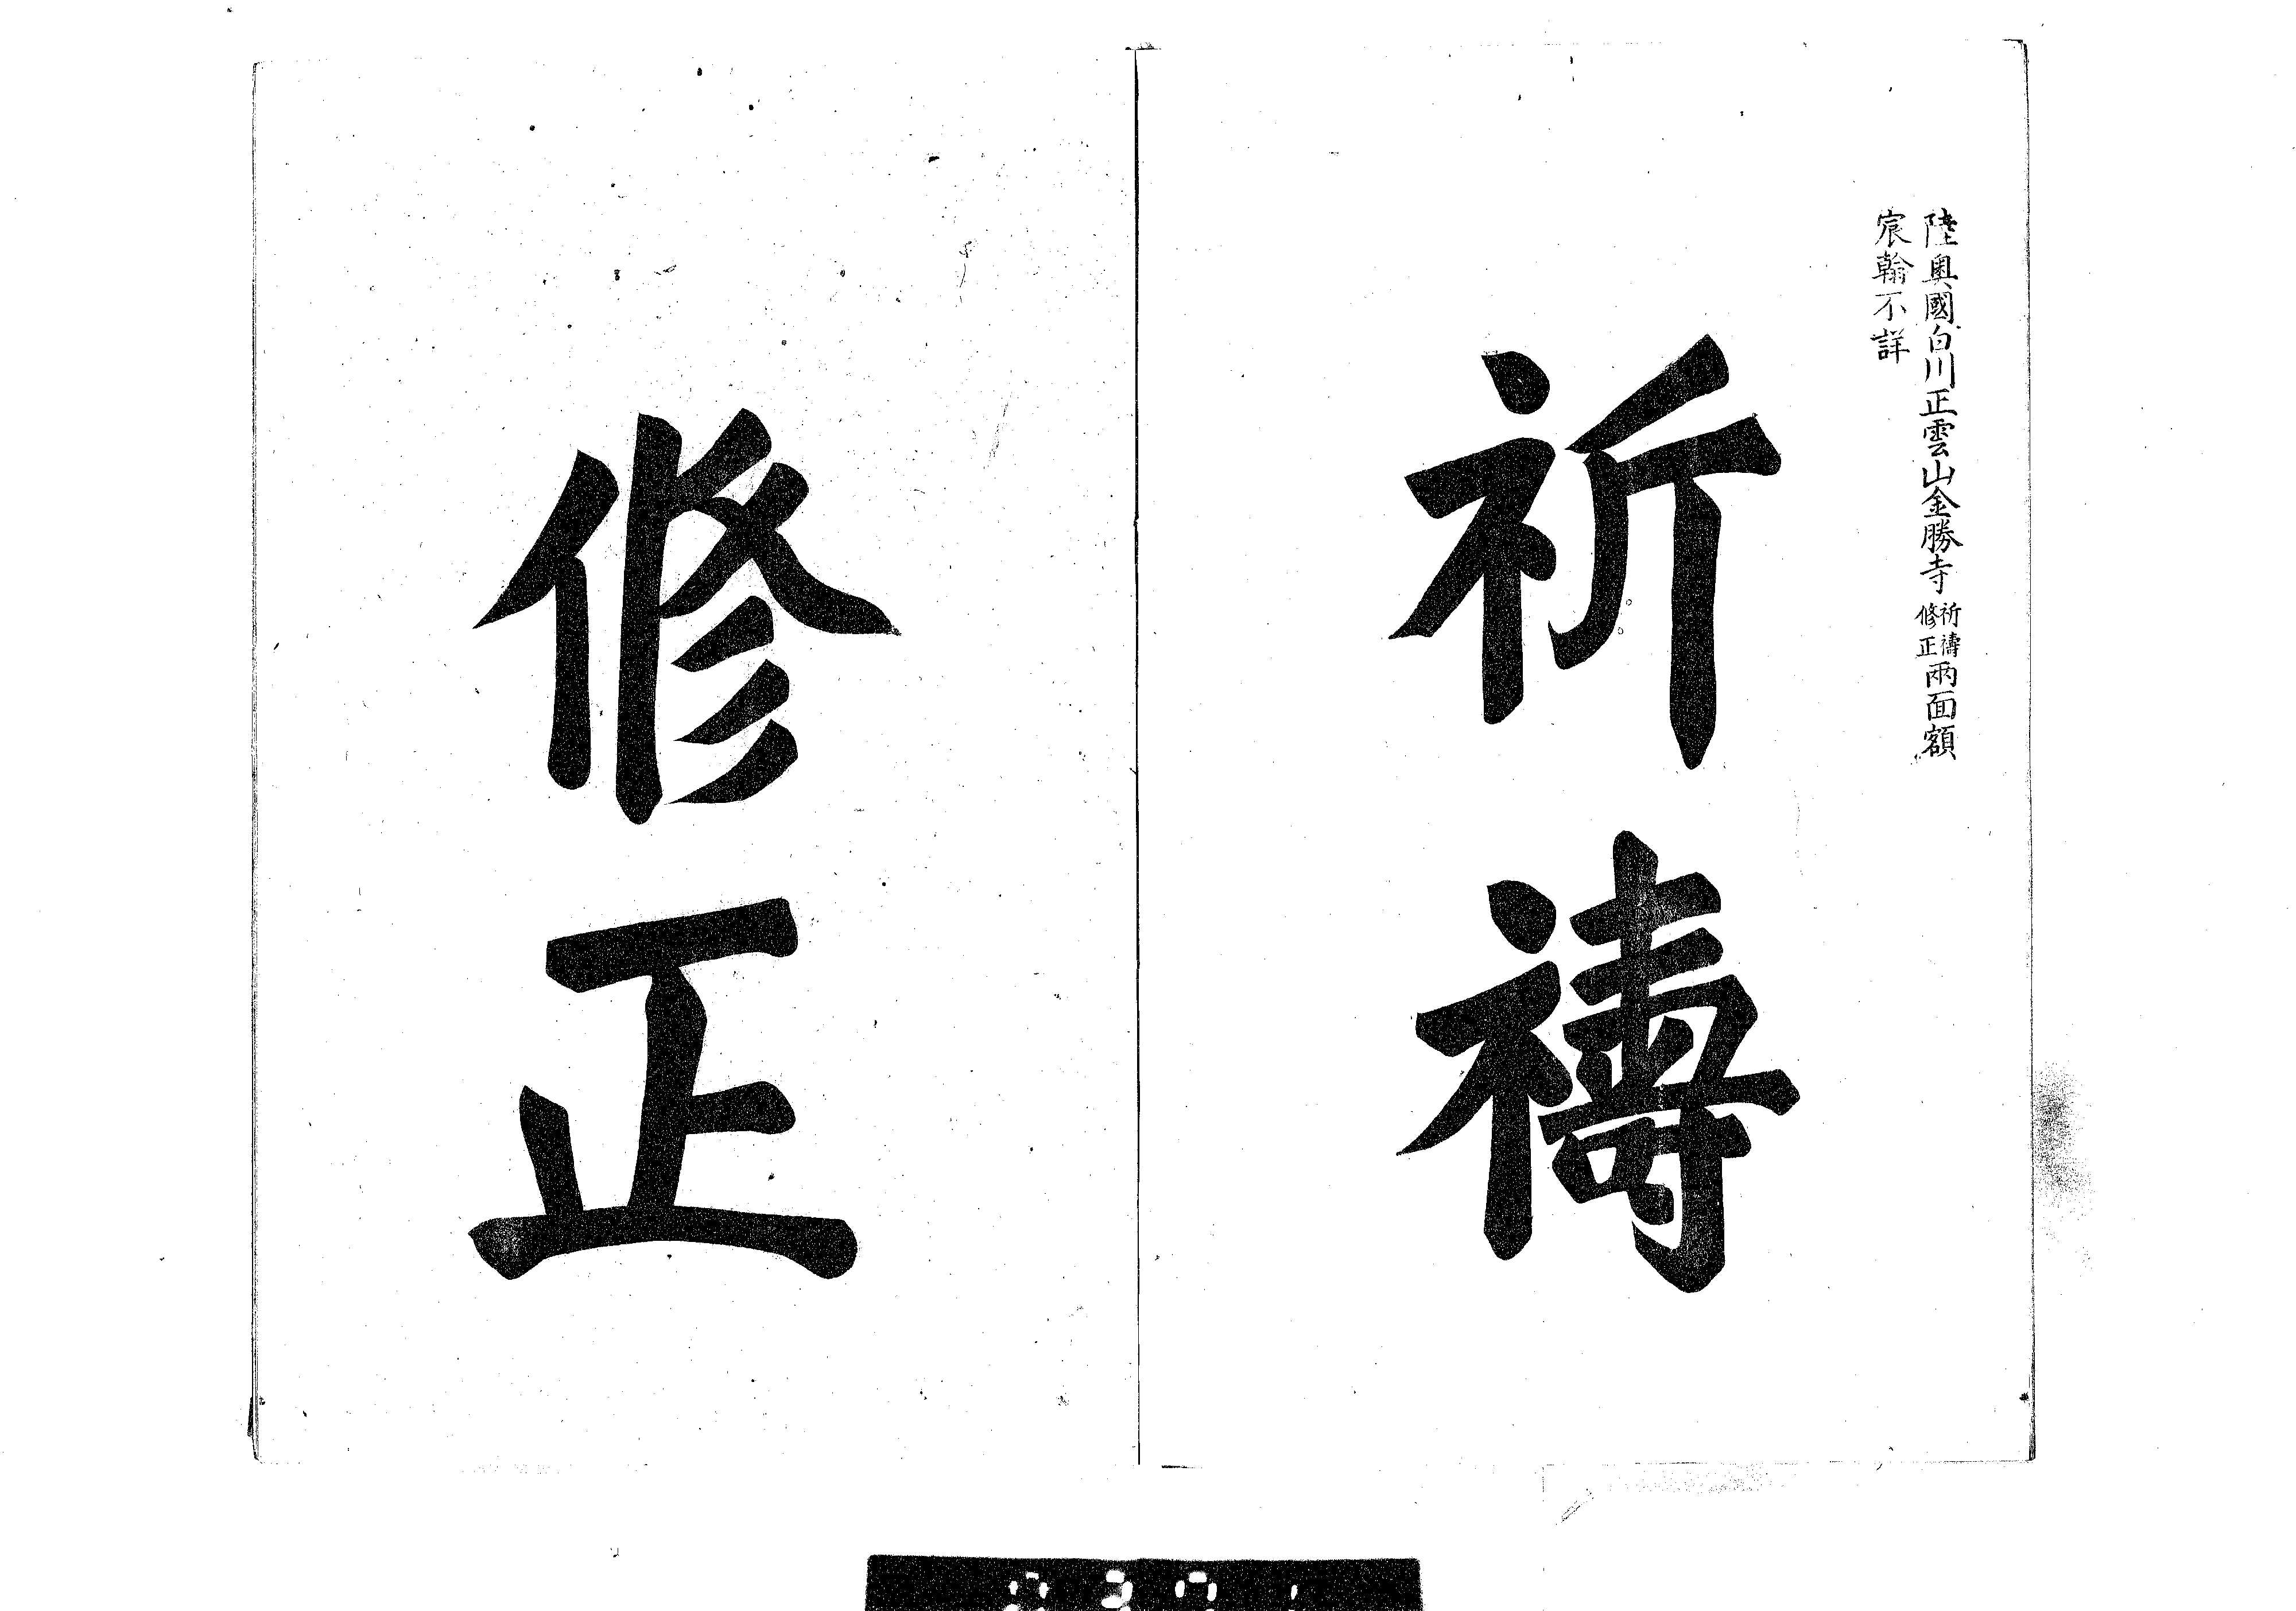 陸奥國白川正雲山金勝寺祈禱修正兩面額
宸翰不詳
祈禱
修正